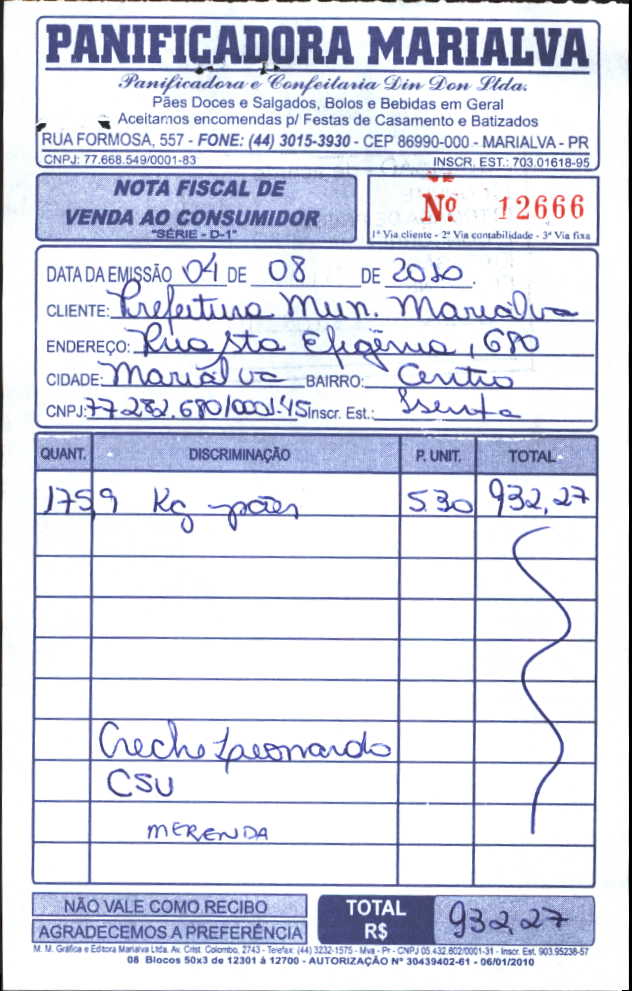 PANIFICADORA MARIALVA
Panificadora e Confeitaria Din Don Ltda.
Pães Doces e Salgados, Bolos e Bebidas em Geral
Aceitamos encomendas p/ Festas de Casamento e Batizados
RUA FORMOSA, 557 - FONE: (44) 3015-3930 - CEP 86990-000 - MARIALVA - PR
CNPJ: 77.668.549/0001-83 INSCR. EST.: 703.01618-95
NOTA FISCAL DE
VENDA AO CONSUMIDOR
"SÉRIE - D-1"
Nº 12666
1ª Via cliente - 2ª Via contabilidade - 3ª Via fixa
DATA DA EMISSÃO 04 DE 08 DE 2010
CLIENTE: Prefeitura Mun. Marialva
ENDEREÇO: Rua Sta Efigênia, 680
CIDADE: Marialva BAIRRO: Centro
CNPJ: 77.282.680/0001-45 Inscr. Est.: Isenta
QUANT. DISCRIMINAÇÃO P. UNIT. TOTAL
175,9 Kg pães 5.30 932,27
Creche Leonardo
CSU
MERENDA
NÃO VALE COMO RECIBO
AGRADECEMOS A PREFERÊNCIA
TOTAL R$ 932,27
M. M. Gráfica e Editora Marialva Ltda. Av. Crist. Colombo, 2743 - Telefax: (44) 3232-1575 - Mva - Pr - CNPJ 05.432.802/0001-31 - Inscr. Est. 903.95238-57
08 Blocos 50x3 de 12301 à 12700 - AUTORIZAÇÃO Nº 30439402-61 - 06/01/2010